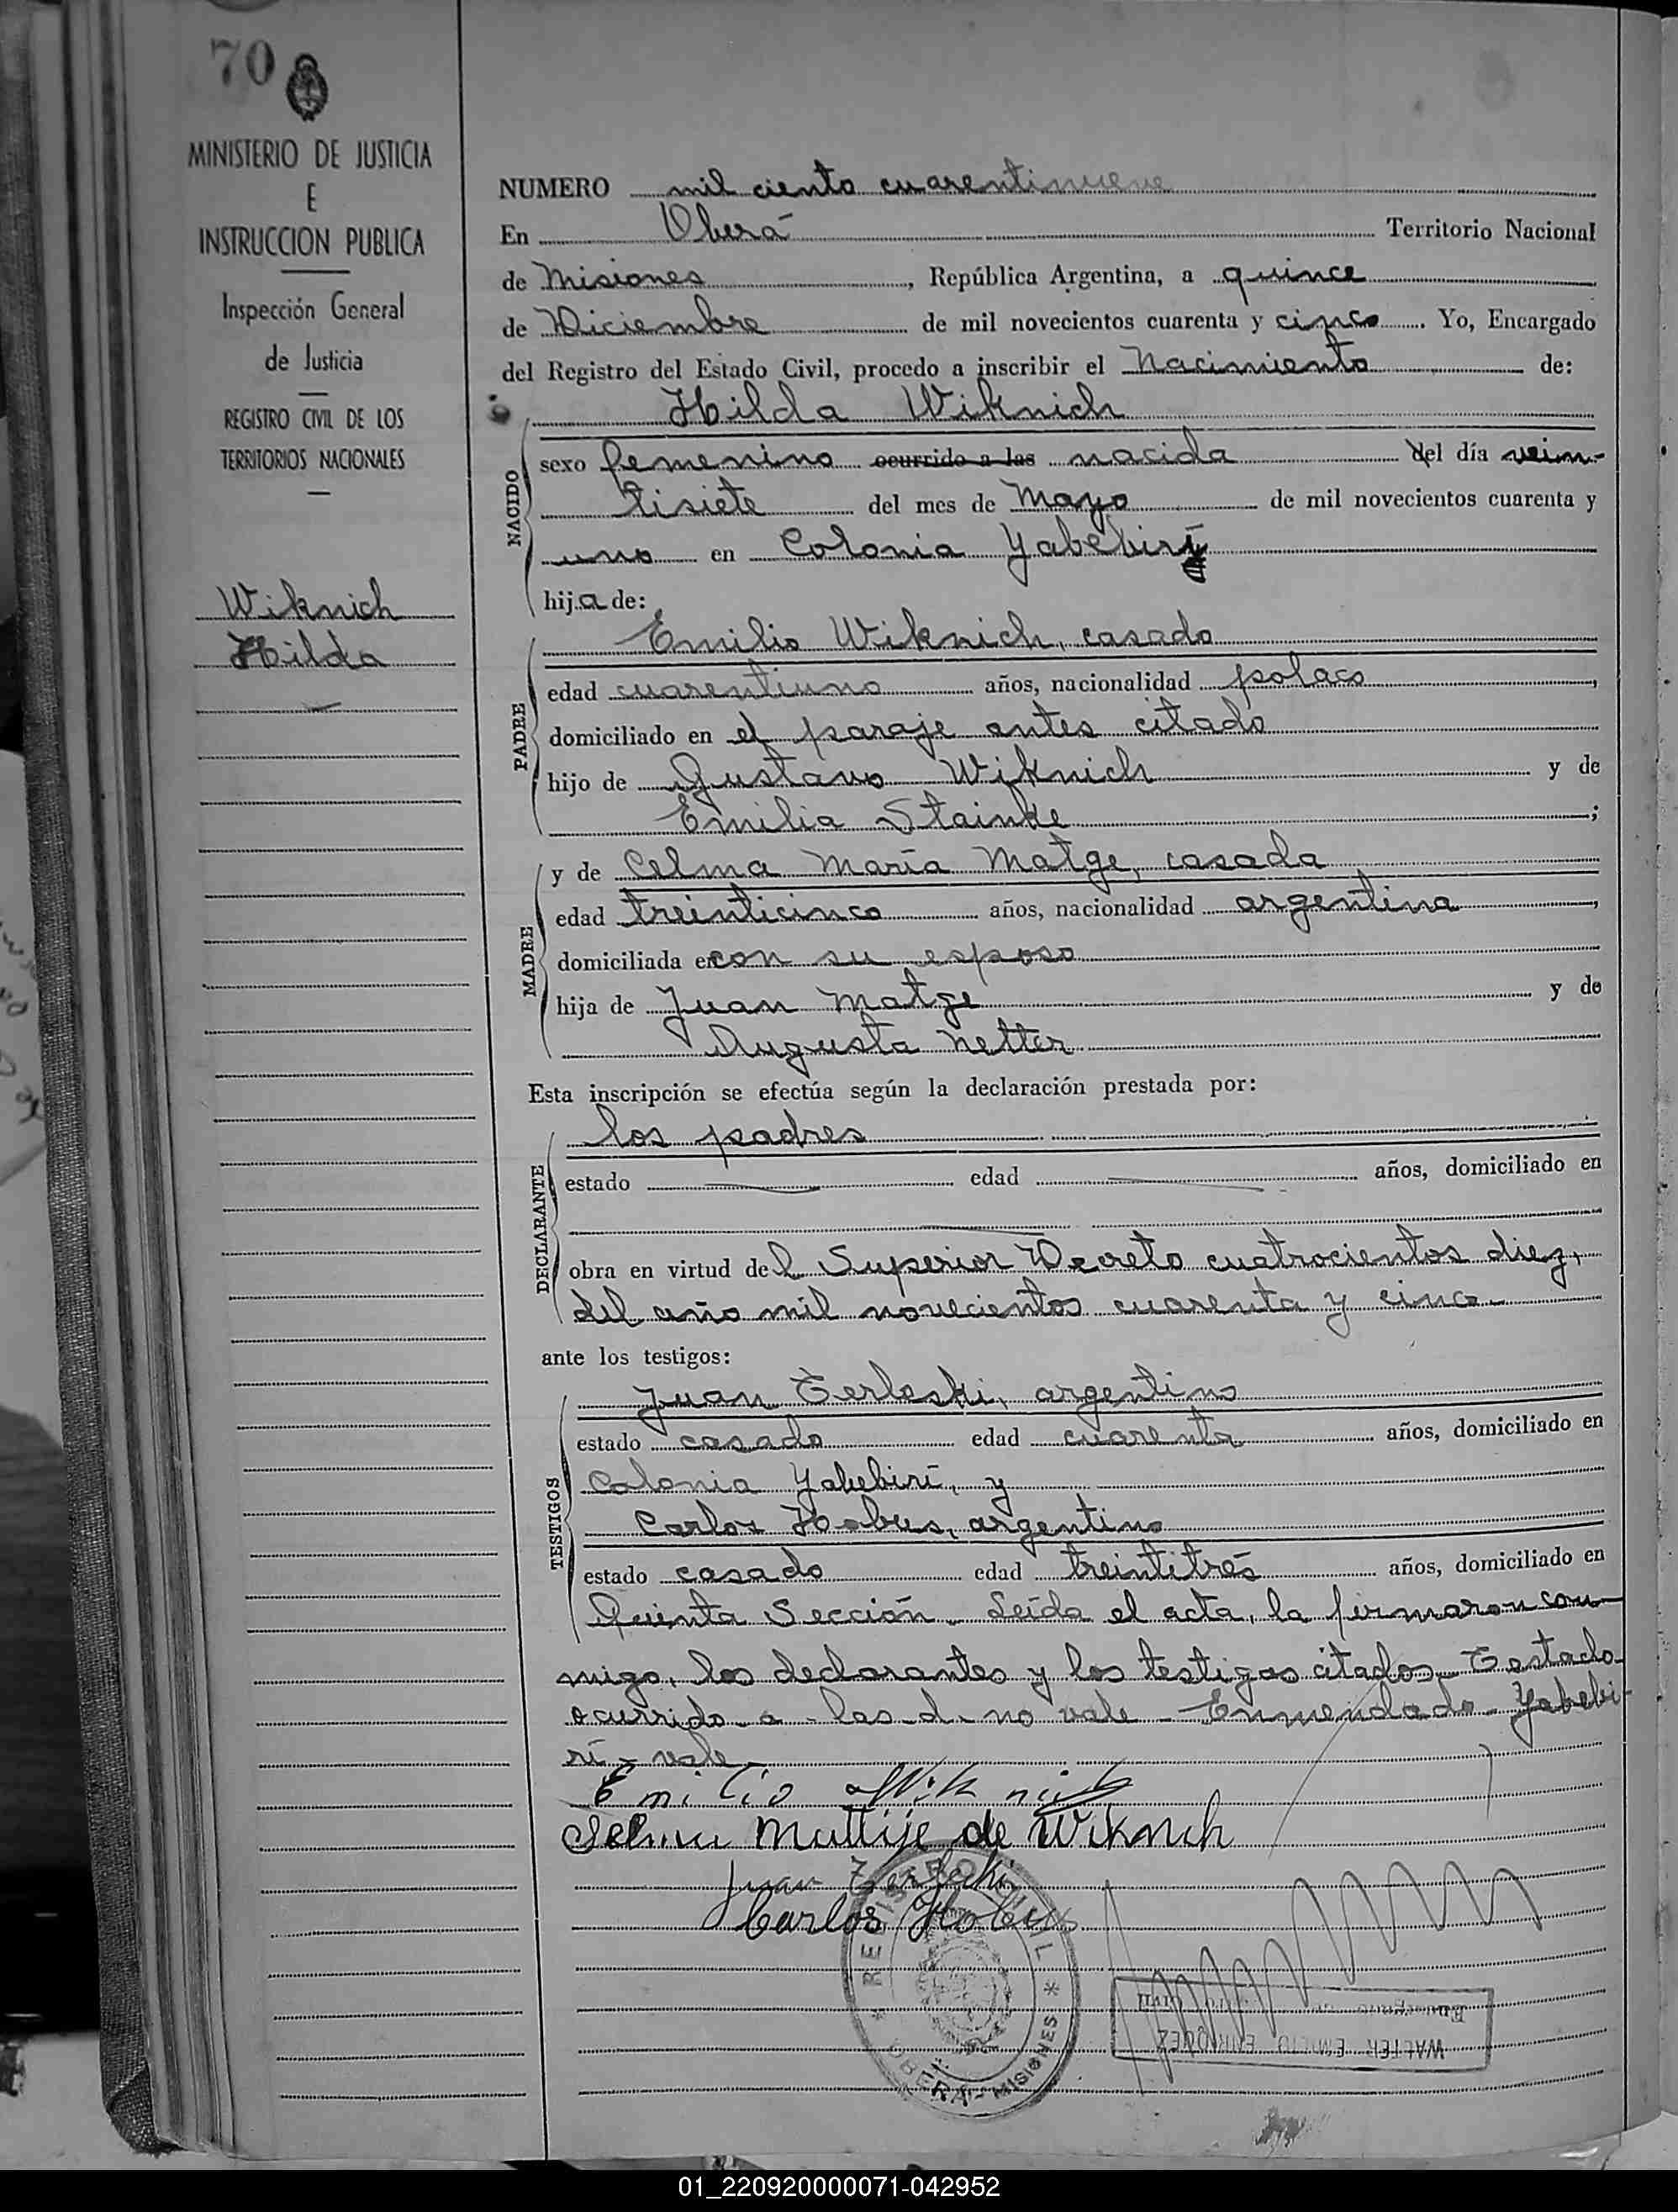 70
MINISTERIO DE JUSTICIA
E
INSTRUCCION PUBLICA
Inspección General
de Justicia
REGISTRO CIVIL DE LOS
TERRITORIOS NACIONALES
Wiknich
Hilda
NUMERO mil ciento cuarentinueve
En Oberá Territorio Nacional
de Misiones, República Argentina, a quince
de Diciembre de mil novecientos cuarenta y cinco. Yo, Encargado
del Registro del Estado Civil, procedo a inscribir el Nacimiento de:
Hilda Wiknich
NACIDO
sexo femenino ocurrido a las nacida del día vein-
tisiete del mes de Mayo de mil novecientos cuarenta y
uno en Colonia Yabebirí
hija de:
PADRE
Emilio Wiknich, casado
edad cuarentiuno años, nacionalidad polaco,
domiciliado en el paraje antes citado
hijo de Gustavo Wiknich y de
Emilia Stainke;
MADRE
y de Celma María Matge, casada
edad treinticinco años, nacionalidad argentina,
domiciliada en con su esposo
hija de Juan Matge y de
Augusta Netter
Esta inscripción se efectúa según la declaración prestada por:
DECLARANTE
los padres
estado edad años, domiciliado en
obra en virtud del Superior Decreto cuatrocientos diez,
del año mil novecientos cuarenta y cinco.
ante los testigos:
TESTIGOS
Juan Terleski, argentino
estado casado edad cuarenta años, domiciliado en
Colonia Yabebirí, y
Carlos Hobus, argentino
estado casado edad treintitrés años, domiciliado en
Quinta Sección. Leída el acta, la firmaron con-
migo, los declarantes y los testigos citados. Testado
ocurrido a las d no vale - Enmendado - Yabebi-
rí - vale
Emilio Wiknich
Selma Mattije de Wiknich
Juan Terleski
Carlos Hobus
REGISTRO CIVIL
OBERA - MISIONES
WALTER ENRIQUEZ
01_220920000071-042952